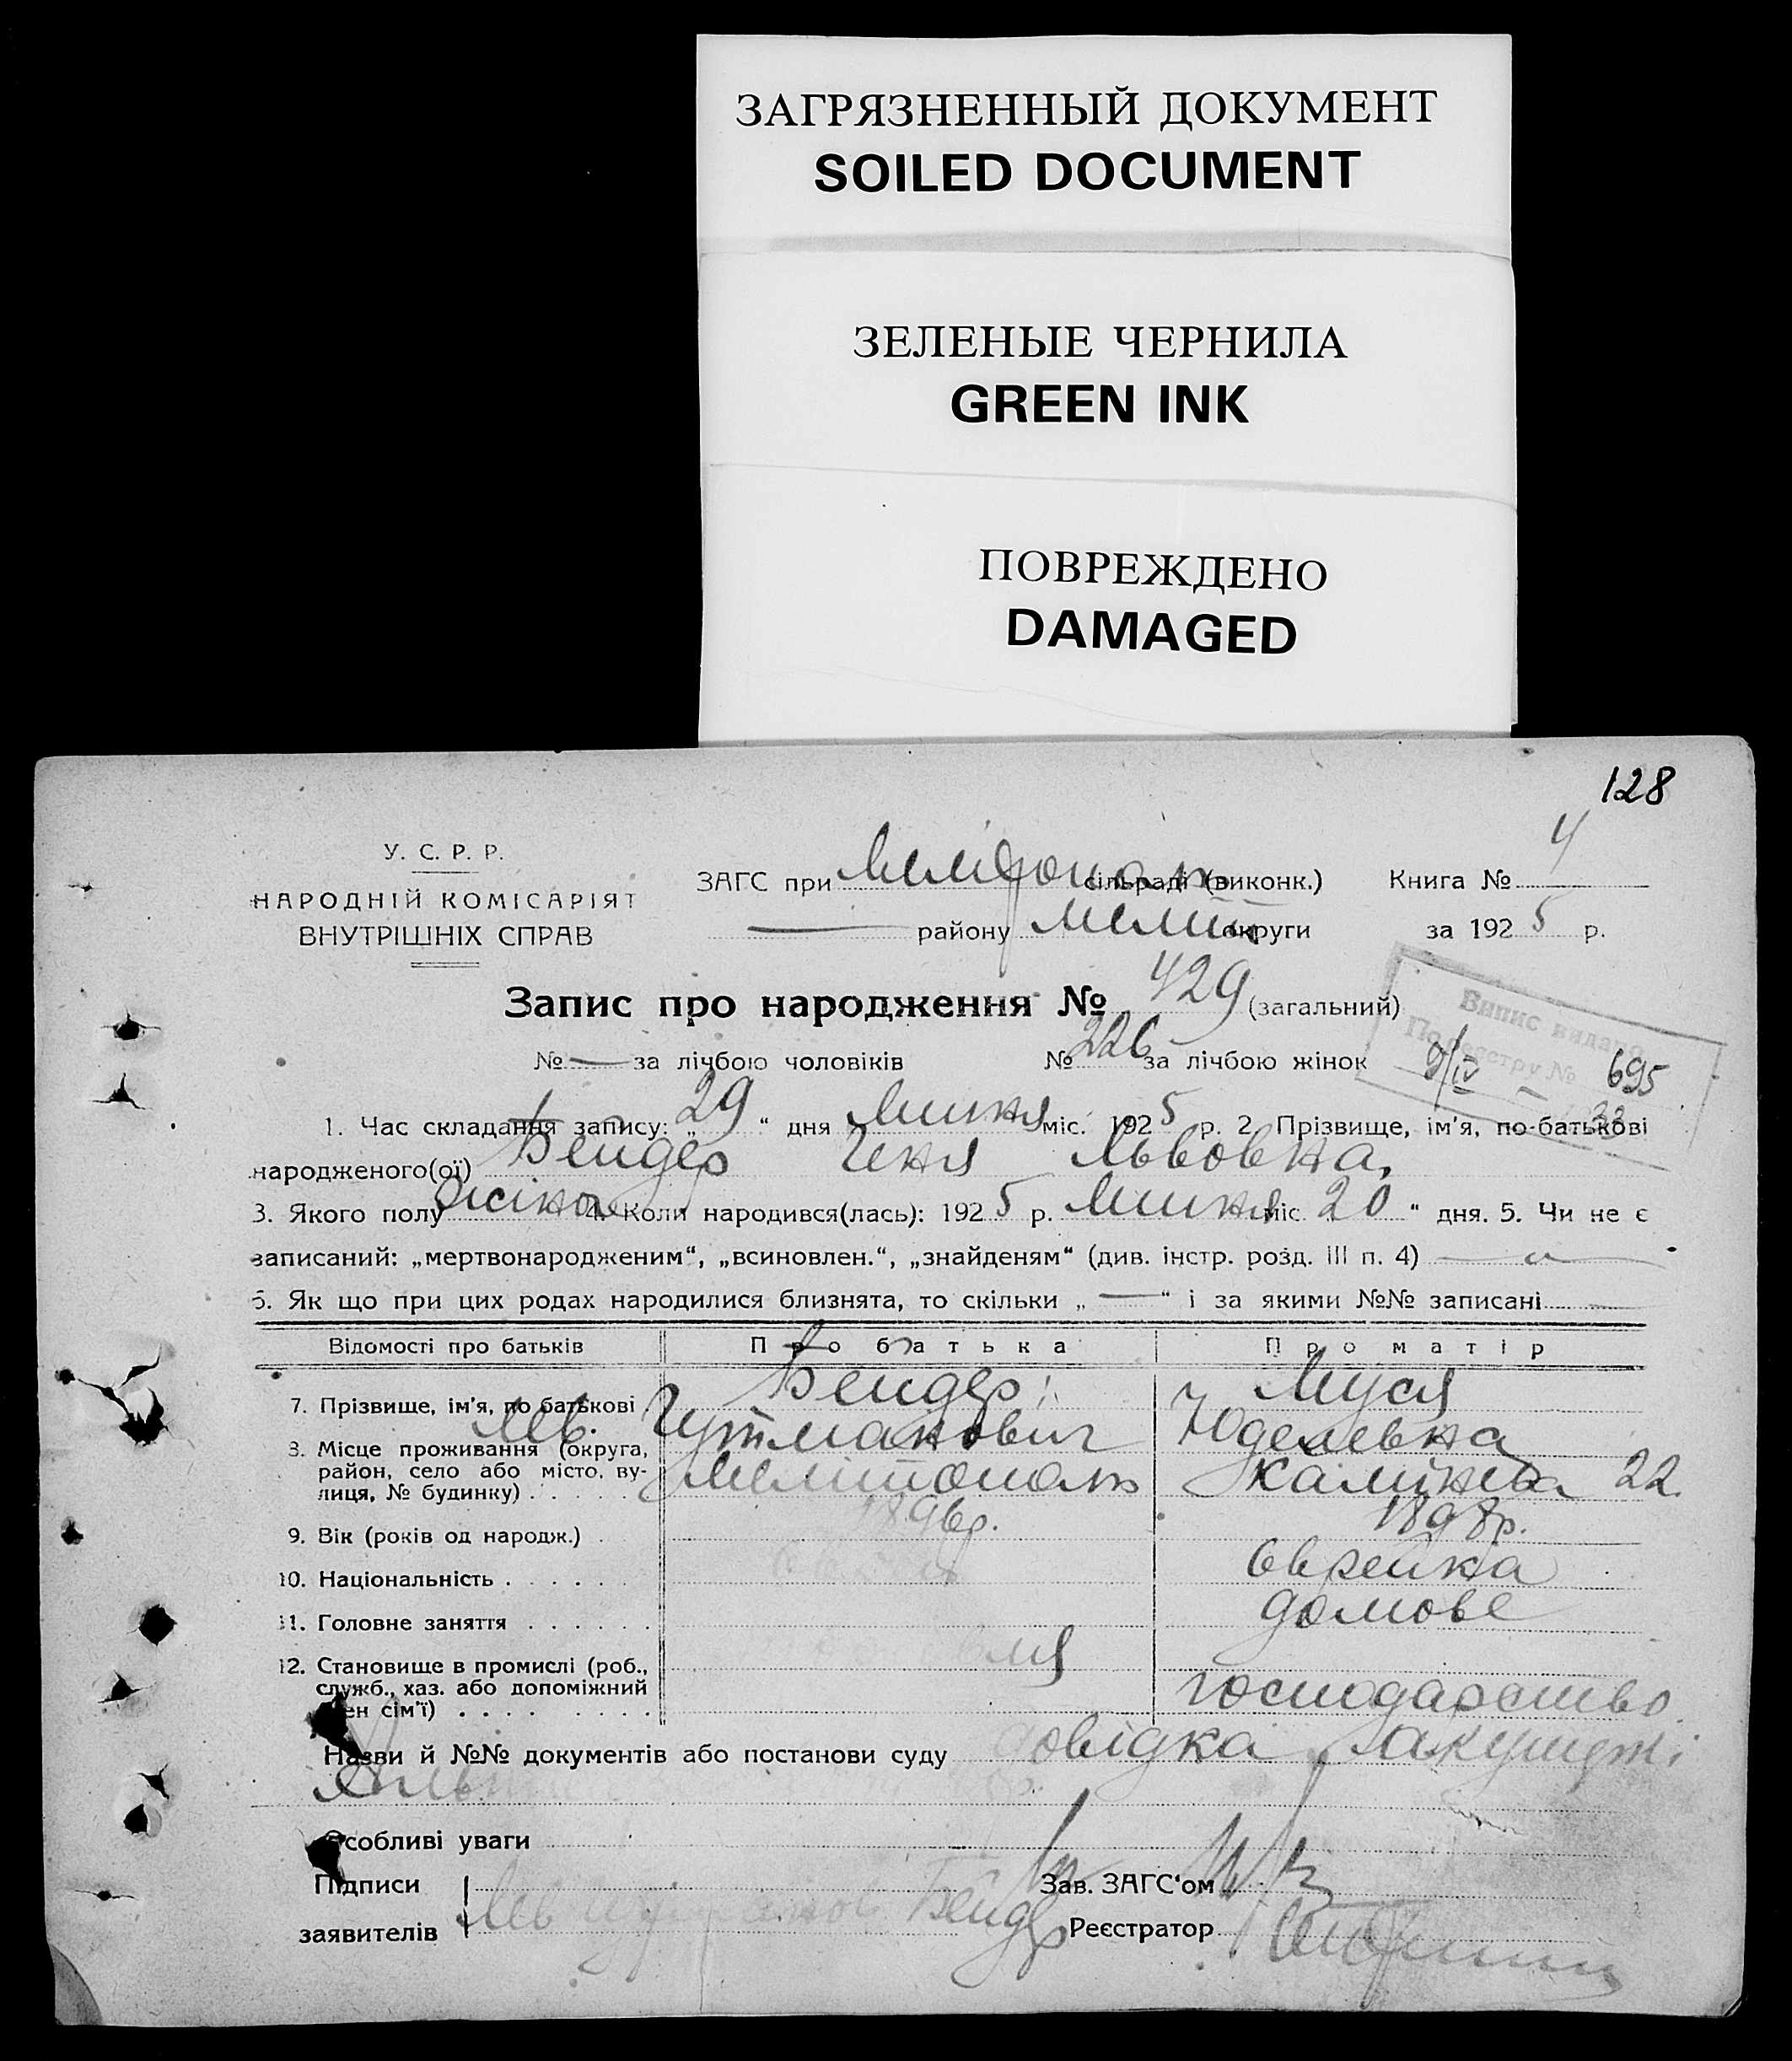 ЗАГРЯЗНЕННЫЙ ДОКУМЕНТ
SOILED DOCUMENT
ЗЕЛЕНЫЕ ЧЕРНИЛА
GREEN INK
ПОВРЕЖДЕНО
DAMAGED
128
У. С. Р. Р.
НАРОДНІЙ КОМІСАРІЯТ
ВНУТРІШНІХ СПРАВ
ЗАГС при сільраді (виконк.) Книга № 4
— району Меліт. округи за 1925 р.
Запис про народження № 429 (загальний)
№ — за лічбою чоловіків № 226 за лічбою жінок
Випис видано
По реєстру № 695
9/IV — 33
1. Час складання запису: „ 29 “ дня липня міс. 1925 р. 2. Прізвище, ім'я, по-батькові
народженого(ої) Бендер Геня Львовна,
3. Якого полу жіноч. 4. Коли народився(лась): 1925 р. липня міс. 20 “ дня. 5. Чи не є
записаний: „мертвонародженим“, „всиновлен.“, „знайденям“ (див. інстр. розд. III п. 4) —
6. Як що при цих родах народилися близнята, то скільки „ — “ і за якими №№ записані
Відомості про батьків Про батька Про матір
7. Прізвище, ім'я, по батькові Бендер Лев. Гутманович Муся Юделевна
8. Місце проживання (округа, район, село або місто, вулиця, № будинку) Мелітополь Калініна 22.
9. Вік (років од народж.) 1896р. 1898р.
10. Національність єврейка
11. Головне заняття домове
12. Становище в промислі (роб., служб., хаз. або допоміжний
ен сім'ї) господарство
Назви й №№ документів або постанови суду довідка акушерки
Особливі уваги
Підписи Зав. ЗАГС'ом
заявителів Лев Бендер Реєстратор